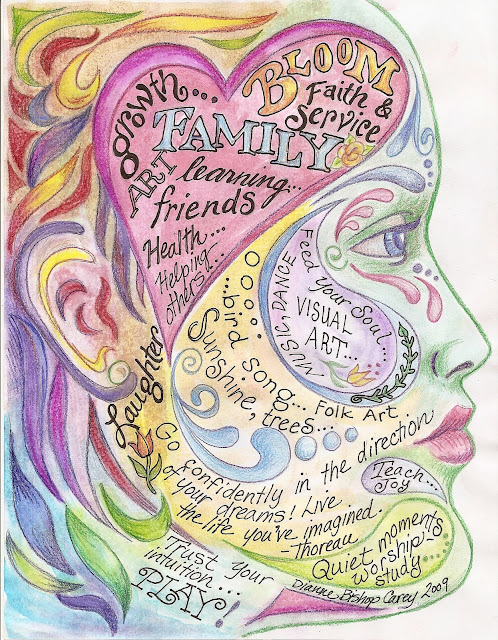 growth...
BLOOM
Faith &
Service
FAMILY
ART
learning...
friends
Health...
Helping
others...
Laughter
MUSIC, DANCE
Feed Your Soul...
VISUAL
ART...
...bird song...
Sunshine, trees...
Folk Art
Go confidently in the direction
of your dreams! Live
the life you've imagined.
-Thoreau
Teach...
Joy
Quiet moments
worship-
study...
Trust Your
intuition...
PLAY!
Dianne Bishop Carey 2009